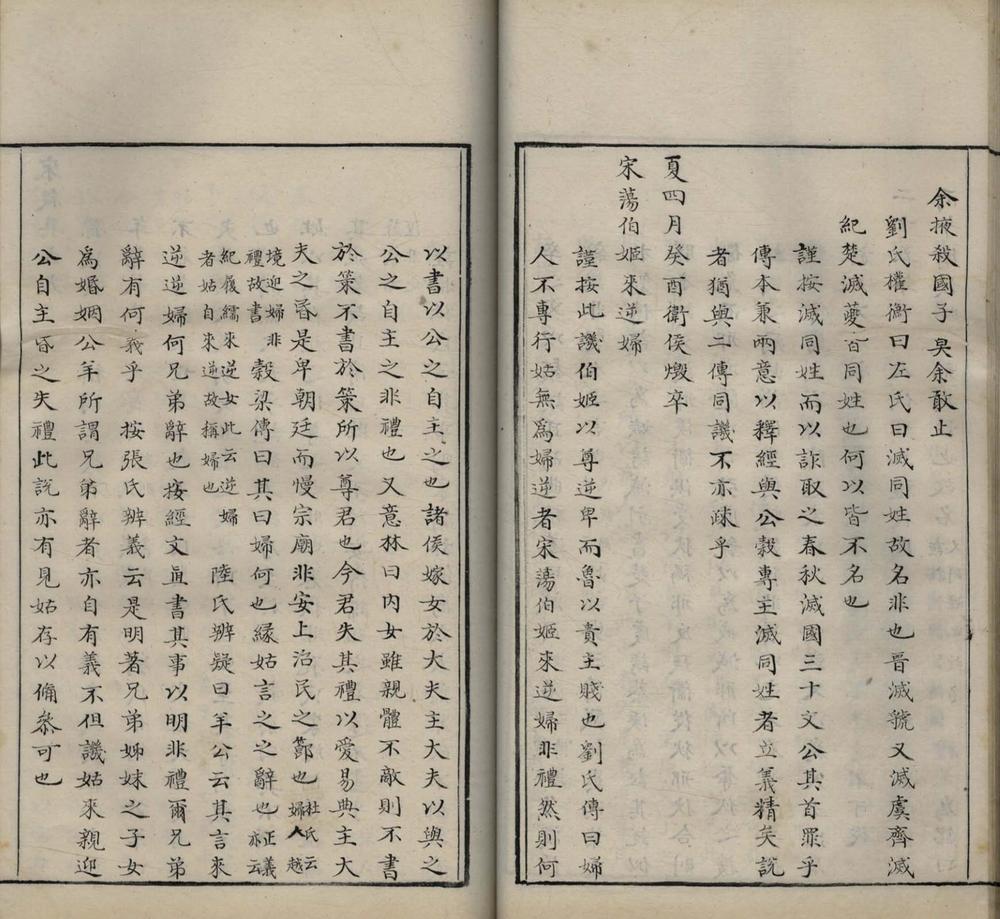 余掖殺國子莫余敢止
劉氏權衡曰左氏曰滅同姓故名非也晉滅虢又滅虞齊滅
紀楚滅夔皆同姓也何以皆不名也
謹按滅同姓而以詐取之春秋滅國三十文公其首罪乎
傳本兼兩意以釋經與公穀專主滅同姓者立義精矣說
者猶與二傳同譏不亦疎乎
夏四月癸酉衛侯燬卒
宋蕩伯姬來逆婦
謹按此譏伯姬以尊逆卑而魯以貴主賤也劉氏傳曰婦
人不專行姑無為婦逆者宋蕩伯姬來逆婦非禮然則何
以書以公之自主之也諸侯嫁女於大夫主大夫以與之
公之自主之非禮也又意林曰內女雖親體不敵則不書
於策不書於策所以尊君也今君失其禮以愛易典主大
夫之昏是卑朝廷而慢宗廟非安上治民之節也杜氏云婦人越
境迎婦非禮故書穀梁傳曰其曰婦何也緣姑言之之辭也正義亦云
紀履繻來逆女此云逆婦者姑自來逆故稱婦也陸氏辨疑曰羊公云其言來
逆逆婦何兄弟辭也按經文直書其事以明非禮爾兄弟
辭有何義乎按張氏辨義云是明著兄弟姊妹之子女
為婚姻公羊所謂兄弟辭者亦自有義不但譏姑來親迎
公自主昏之失禮此說亦有見姑存以備參可也